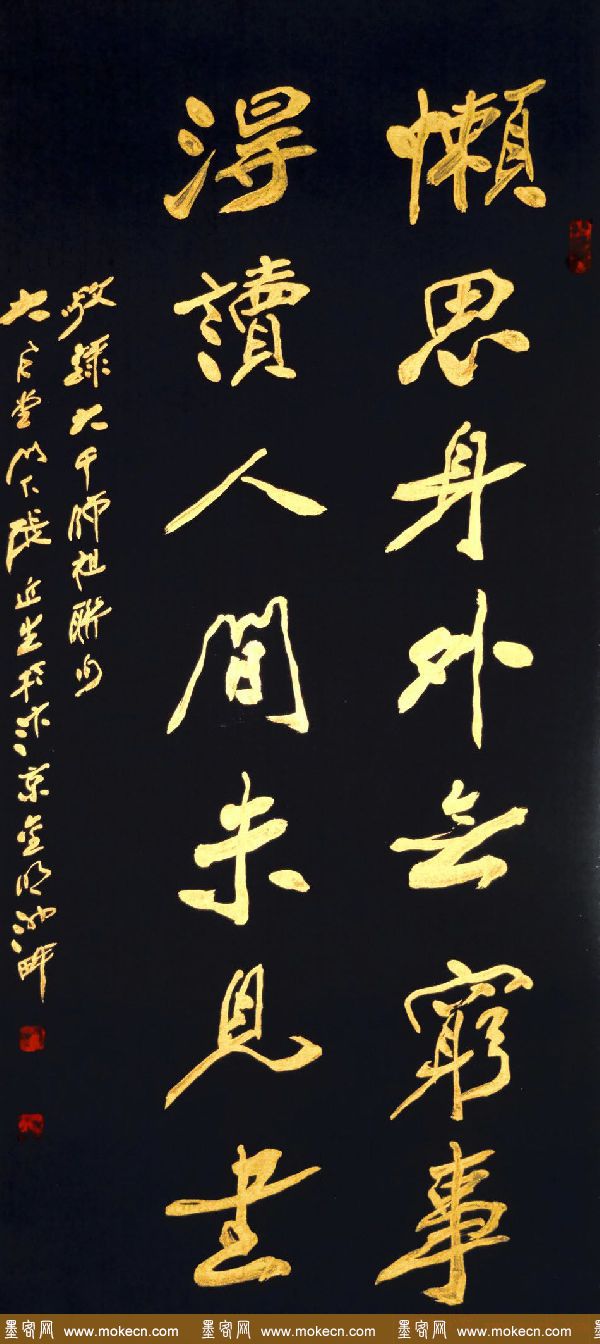 懶思身外無窮事
得讀人間未見書
敬錄大千師祖聯句
大風堂門下張近生於汴京金明池畔
墨客网 www.mokecn.com 墨客网 www.mokecn.com 墨客网 www.mokecn.com